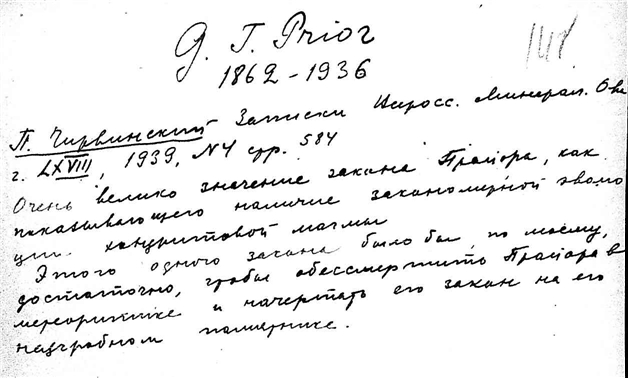 G. T. Prior
1862-1936
П. Чирвинский Записки Всеросс. Минерал. О-ва
г. LXVIII, 1939, N4 стр. 584
Очень велико значение закона Прайора, как
показывающего наличие закономерной эволю
ции хондритовой магмы
Этого одного закона было бы, по моему,
достаточно, чтобы обессмертить Прайора в
метеоритике и начертать его закон на его
надгробном памятнике.